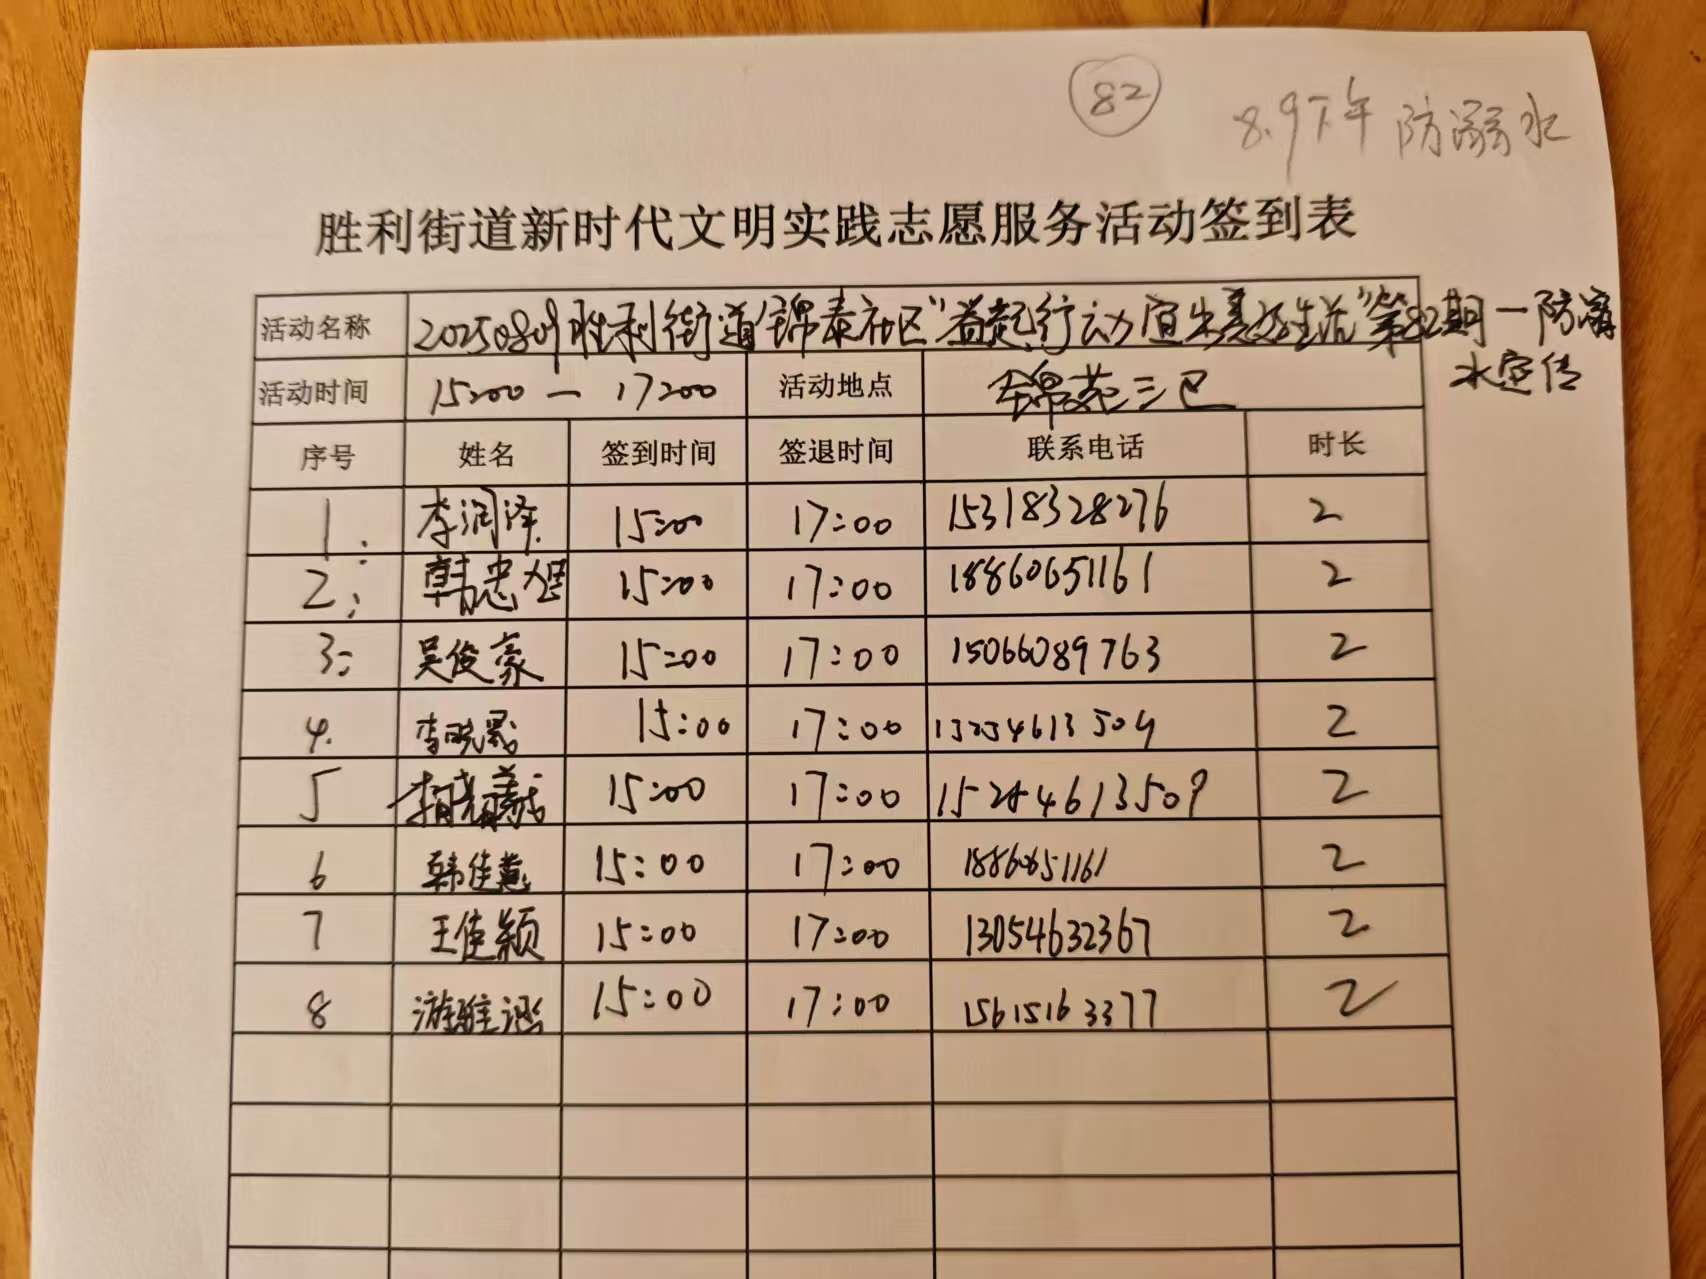 82
8.9下午 防溺水
胜利街道新时代文明实践志愿服务活动签到表
活动名称 20250809胜利街道锦泰社区"益起行动 宜生美好生活"第82期—防溺
水宣传
活动时间 15:00 — 17:00 活动地点 锦苑三巴
序号 姓名 签到时间 签退时间 联系电话 时长
1. 李润泽 15:00 17:00 15318328276 2
2. 韩忠旭 15:00 17:00 18860651161 2
3. 吴俊豪 15:00 17:00 15066089763 2
4. 李晓 15:00 17:00 2
5 15:00 17:00 2
6 韩佳慧 15:00 17:00 18860651161 2
7 王佳颖 15:00 17:00 13054632367 2
8 游雅涵 15:00 17:00 15615163377 2